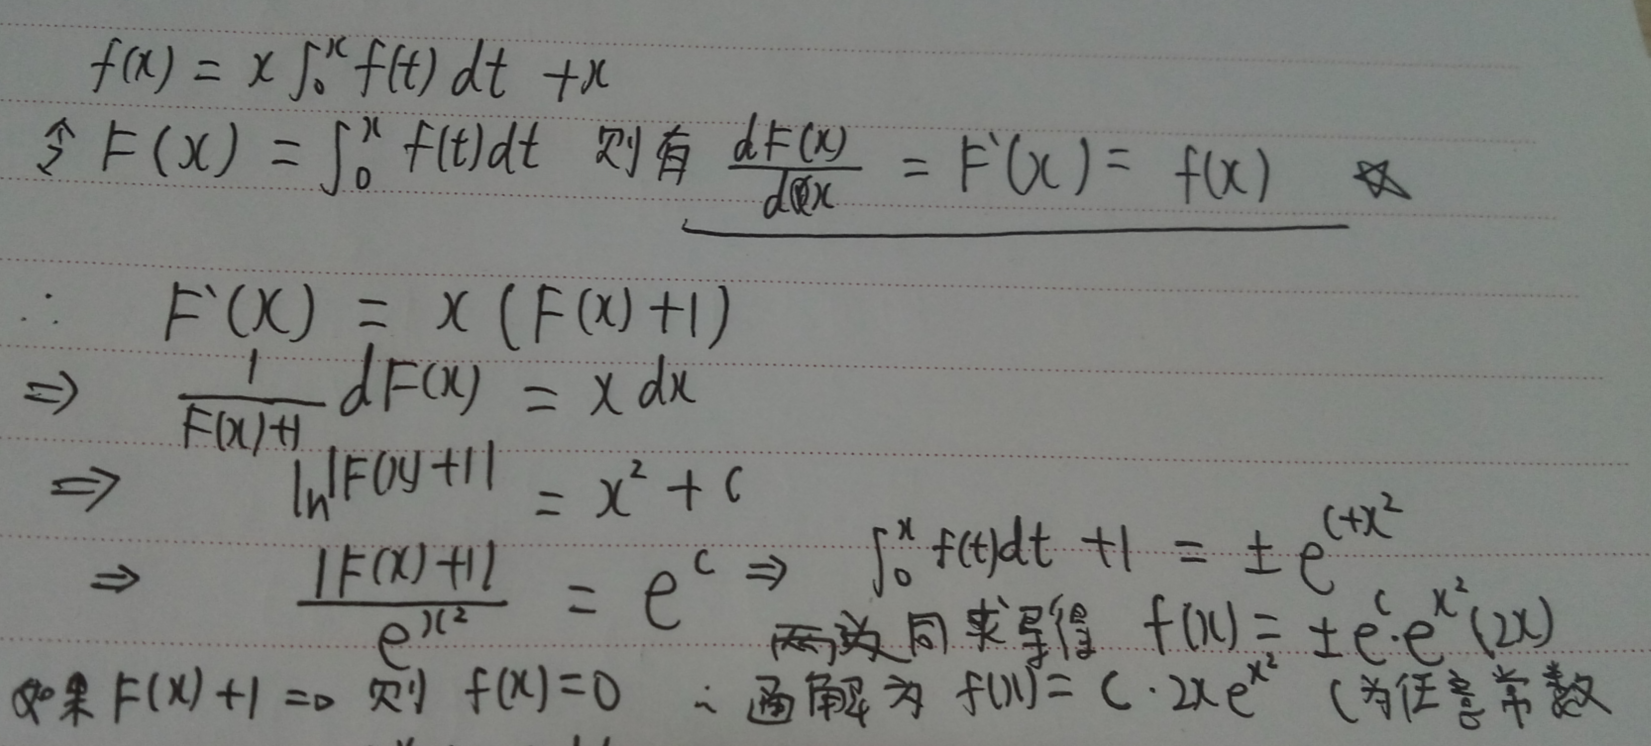 f(x) = x ∫₀ˣ f(t) dt + x
令 F(x) = ∫₀ˣ f(t)dt 则有 dF(x)/dx = F'(x) = f(x) ☆
∴ F'(x) = x (F(x)+1)
⇒ 1/(F(x)+1) dF(x) = x dx
⇒ ln|F(x)+1| = x² + c
⇒ |F(x)+1|/e^(x²) = e^c ⇒ ∫₀ˣ f(t)dt + 1 = ± e^(c+x²)
两边同求导得 f(x) = ± e^c · e^(x²) (2x)
如果 F(x)+1 = 0 则 f(x)=0 ∴ 通解为 f(x) = C · 2x e^(x²) C为任意常数